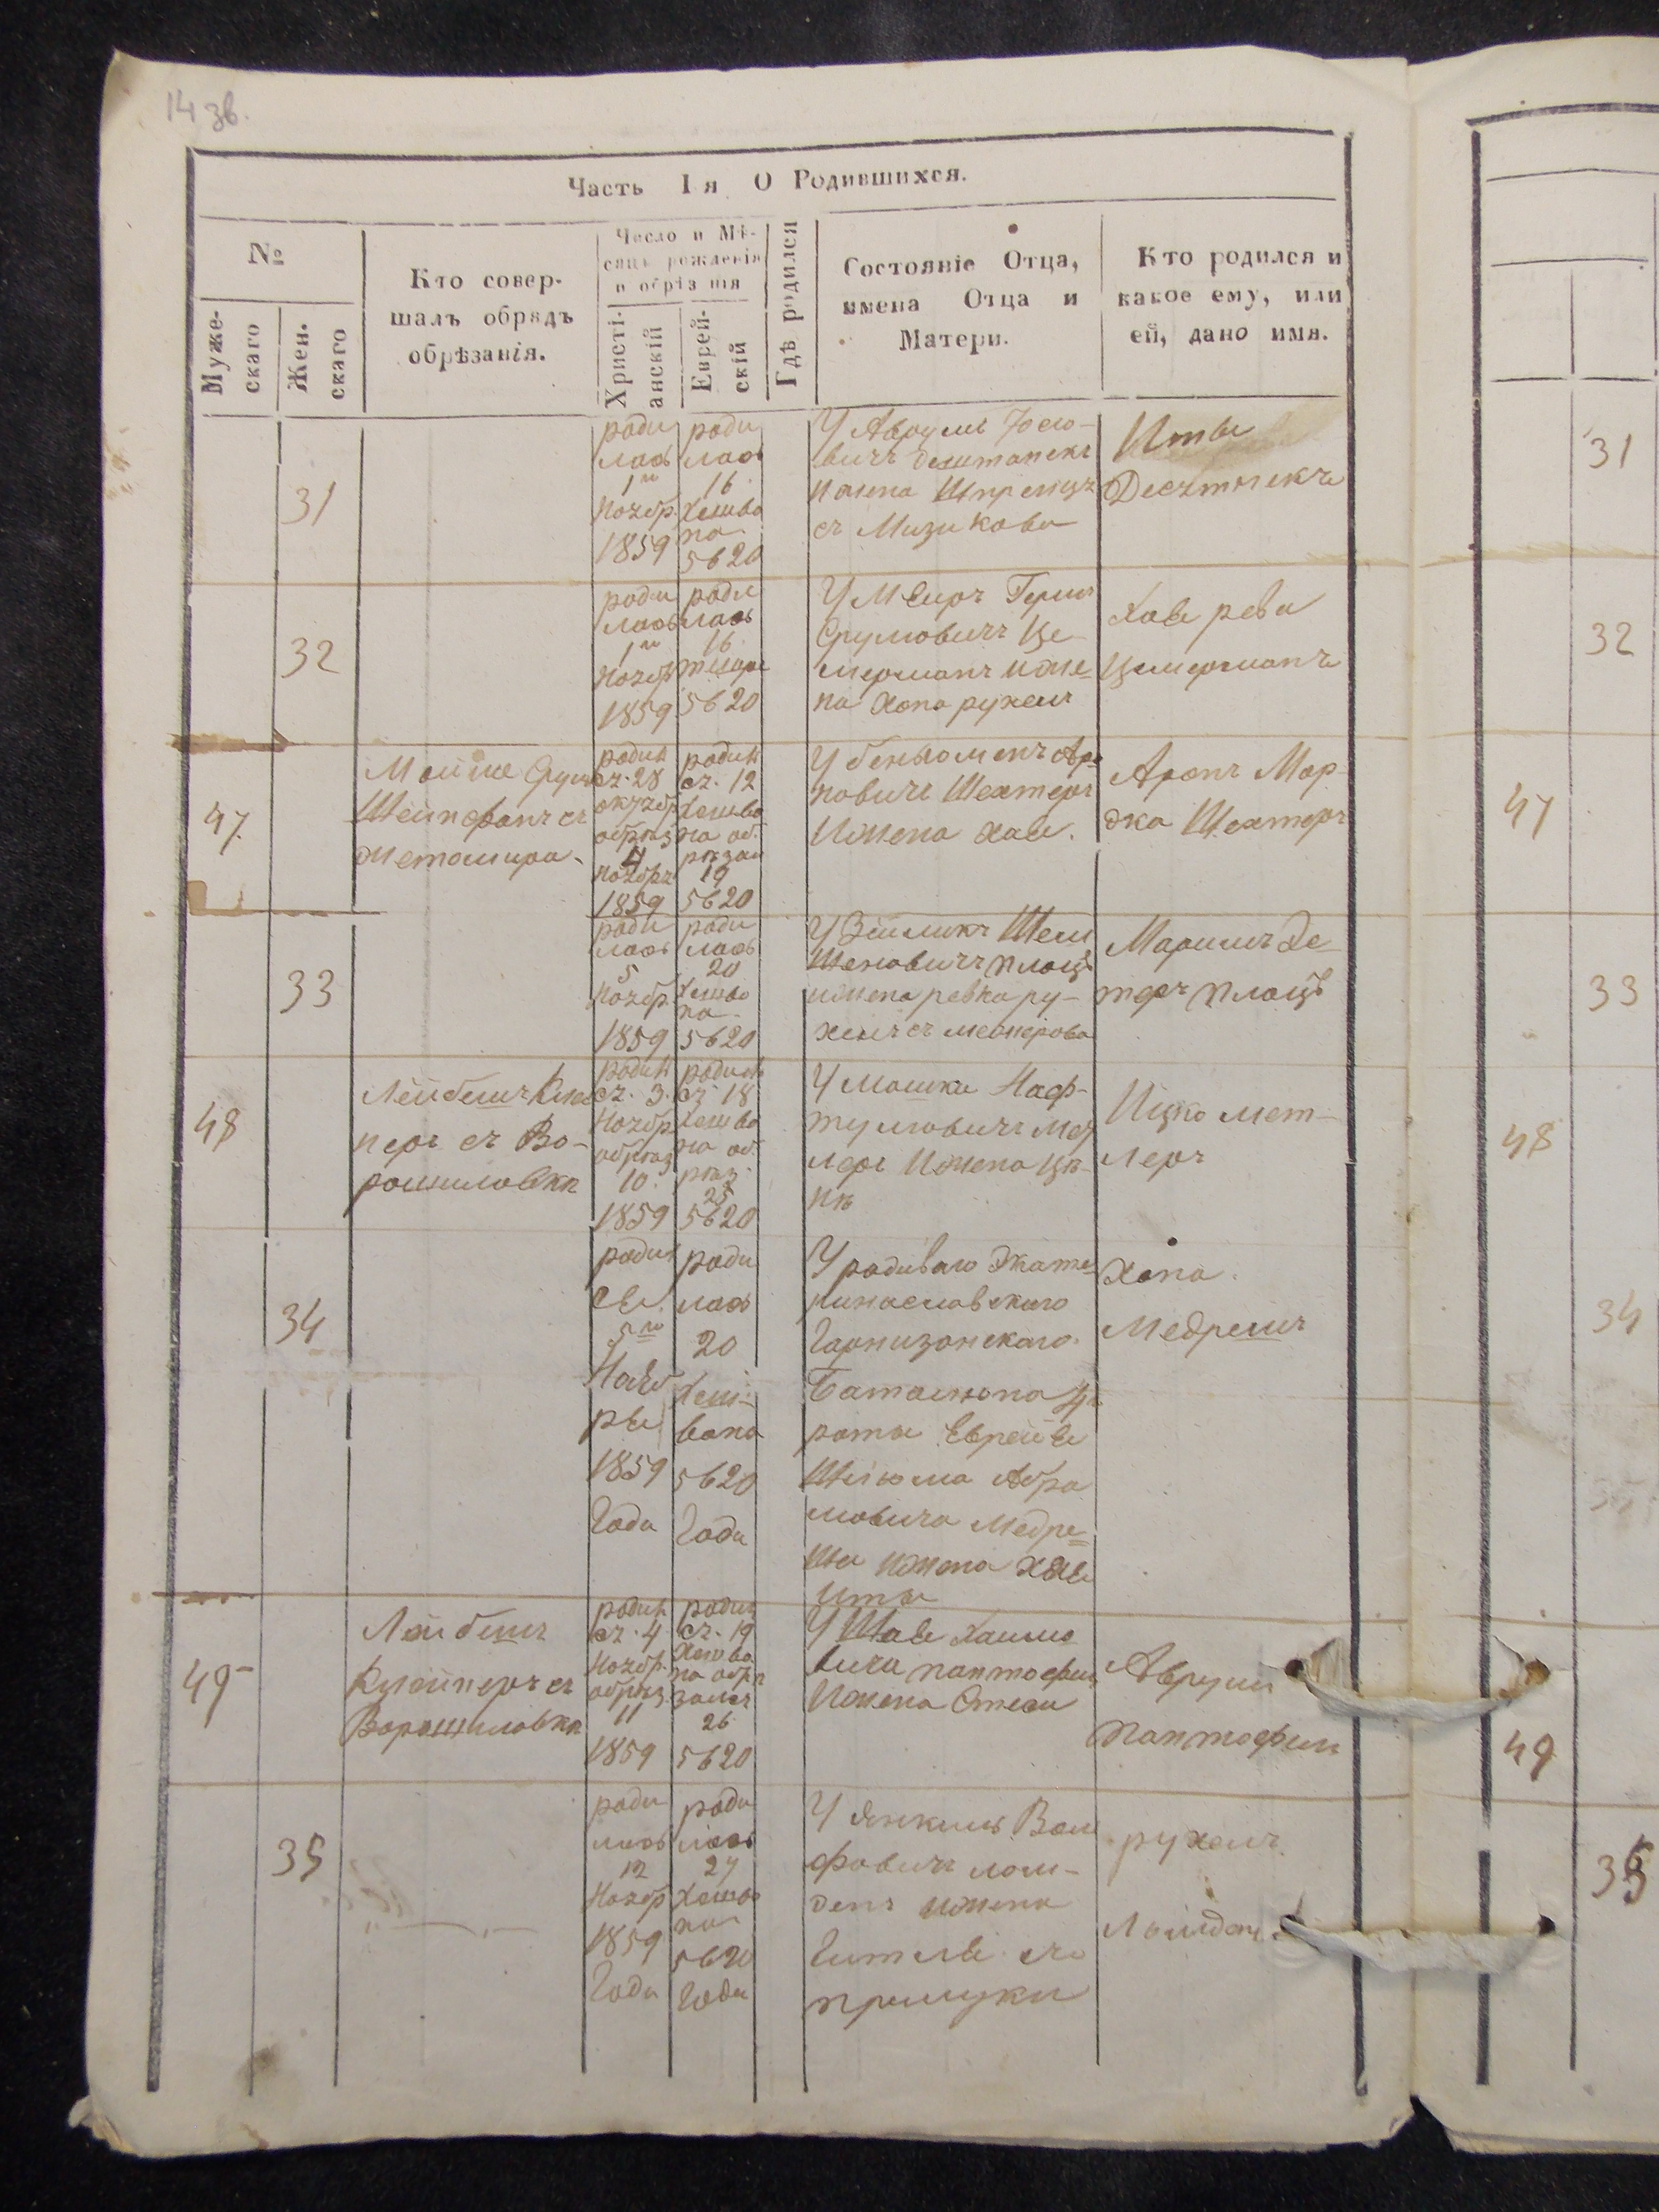 14 зв.
Часть I я О Родившихся.
№
Муже-
скаго
Жен.
скаго
Кто совер-
шалъ обрядъ
обрѣзанія.
Число и Мѣ-
сяцъ рожденія
и обрѣзанія
Христі-
анскій
Еврей-
скій
Гдѣ родился
Состояніе Отца,
имена Отца и
Матери.
Кто родился и
какое ему, или
ей, дано имя.
31
роди
лась
1го
Ноябр
1859
роди
лась
16
Хешва
на
5620
У Аврумъ
вичъ
и жена Шпренцъ
съ Мизикова
Иты
31
32
роди
лась
1го
Ноябр
1859
роди
лась
16
5620
У Меиръ Герш
Срулювичъ Це-
мерманъ и же-
на Хана рухель
Хаве рева
Цемерманъ
32
47
Мойше Сруль
Штейнфанъ съ
Жетомира
родил
ся 28
октябр
обрѣз
4
Ноября
1859
родил
ся 12
Хешва
на об.
рѣзан
19
5620
У беньоменъ Аро
новичъ Шехтеръ
И жена Хая.
Аронъ Мор-
дко Шехтеръ
47
33
роди
лась
5
Ноябр
1859
роди
лась
20
Хешва
на
5620
У Зейликъ Шлем
Шеновичъ плоцъ
и жена ревка ру-
хель съ
Мариемъ Де-
плоцъ
33
48
Лейбишъ Клей
перъ съ Во-
рошиловки
родил
ся 3
Ноябр
обрѣз
10
1859
родил
ся 18
Хешва
на об.
рѣз.
25
5620
У Мошки Наф-
тулювичъ Мет
леръ И жена Ци-
пѣ
Ицко Мет-
леръ
48
34
родил
ся
5го
Нояб
ря
1859
Года
роди
лась
20
Хеш-
вана
5620
Года
У радиваго Экате-
ринославскаго
Гарнизонскаго
Баталиона 4й
роты Еврейя
Шлюма Абра
мовича Медре-
ша и жена Хая
Иты
Хана
Медрешъ
34
49
Лейбишъ
Клейперъ съ
Ворошиловки
родил
ся 4
Ноябр
обрѣз
11
1859
родил
ся 19
Хешва
на обрѣ
занъ
26
5620
У Шае Хаимо
вича пантофил
И жена Стеси
Аврум
Пантофил
49
35
роди
лась
12
Ноябр
1859
Года
роди
лась
27
Хешва
на
5620
Года
У Янкиль Воль
фовичъ лом-
денъ и жена
Гителе съ
прилуки
рухель
35